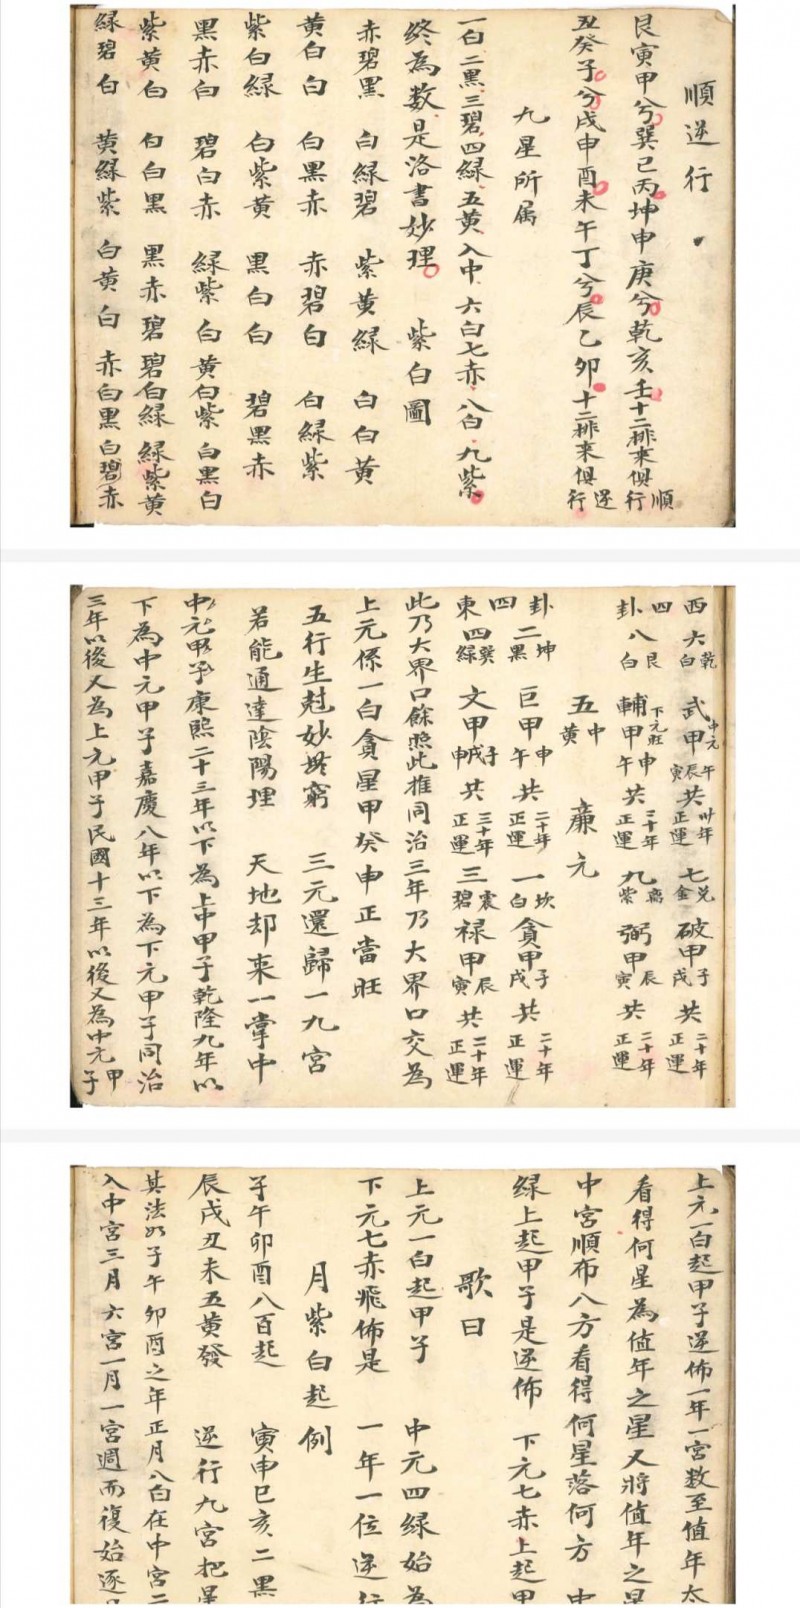 順逆行
艮寅甲兮巽巳丙坤申庚兮乾亥壬十二排來俱順行
丑癸子兮戌申酉未午丁兮辰乙卯十二排來俱逆行
九星所属
一白二黑三碧四緑五黄入中六白七赤八白九紫
終為数是洛書妙理 紫白圖
赤碧黑 白緑碧 紫黄緑 白白黄
黄白白 白黑赤 赤碧白 白緑紫
紫白緑 白紫黄 黑白白 碧黑赤
黑赤白 碧白赤 緑紫白 黄白紫 白黑白
紫黄白 白白黑 黑赤碧 碧白緑 緑紫黄
緑碧白 黄緑紫 白黄白 赤白黑 白碧赤
西六乾白 武中元甲午辰寅共卅年正運 七兑金 破甲子戌共二十年正運
四卦八艮白 輔下元旺甲申午共三十年正運 九离紫 弼甲辰寅共二十年正運
五中黄 廉元
卦二坤黑 巨甲申午共二十年正運 一坎白 貪甲子戌共二十年正運
東四四巽緑 文甲子戌申共三十年正運 三震碧 禄甲辰寅共二十年正運
此乃大界口餘照此推同治三年乃大界口交為
上元係一白貪星甲癸申正當旺
五行生尅妙無窮 三元還歸一九宮
若能通達陰陽理 天地却来一掌中
中元甲子康熙二十三年以下為上中甲子乾隆九年以
下為中元甲子嘉慶八年以下為下元甲子同治
三年以後又為上元甲子民國十三年以後又為中元甲子
上元一白起甲子逆佈一年一宮数至值年太
看得何星為值年之星又將值年之星
中宮順布八方看得何星落何方 中
绿上起甲子是逆佈 下元七赤上起甲
歌曰
上元一白起甲子 中元四緑始為
下元七赤飛佈是 一年一位逆行
月紫白起例
子午卯酉八百起 寅申巳亥二黑
辰戌丑未五黄發 逆行九宮把星
其法如子午卯酉之年正月八白在中宮二
入中宮三月六宮一月一宮週而復始逐